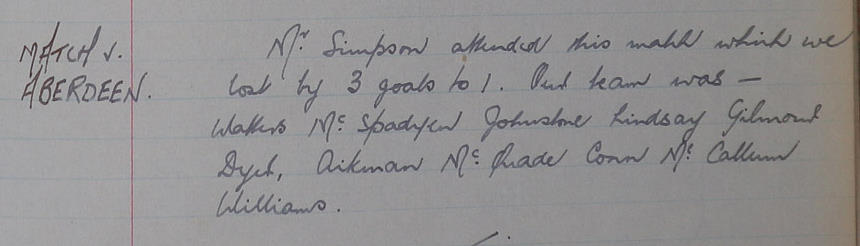 MATCH v.
ABERDEEN.
Mr. Simpson attended this match which we
lost by 3 goals to 1. Our team was —
Watters McSpadyen Johnstone Lindsay Gilmour
Dyet, Aikman McQuade Conn McCallum
Williams.